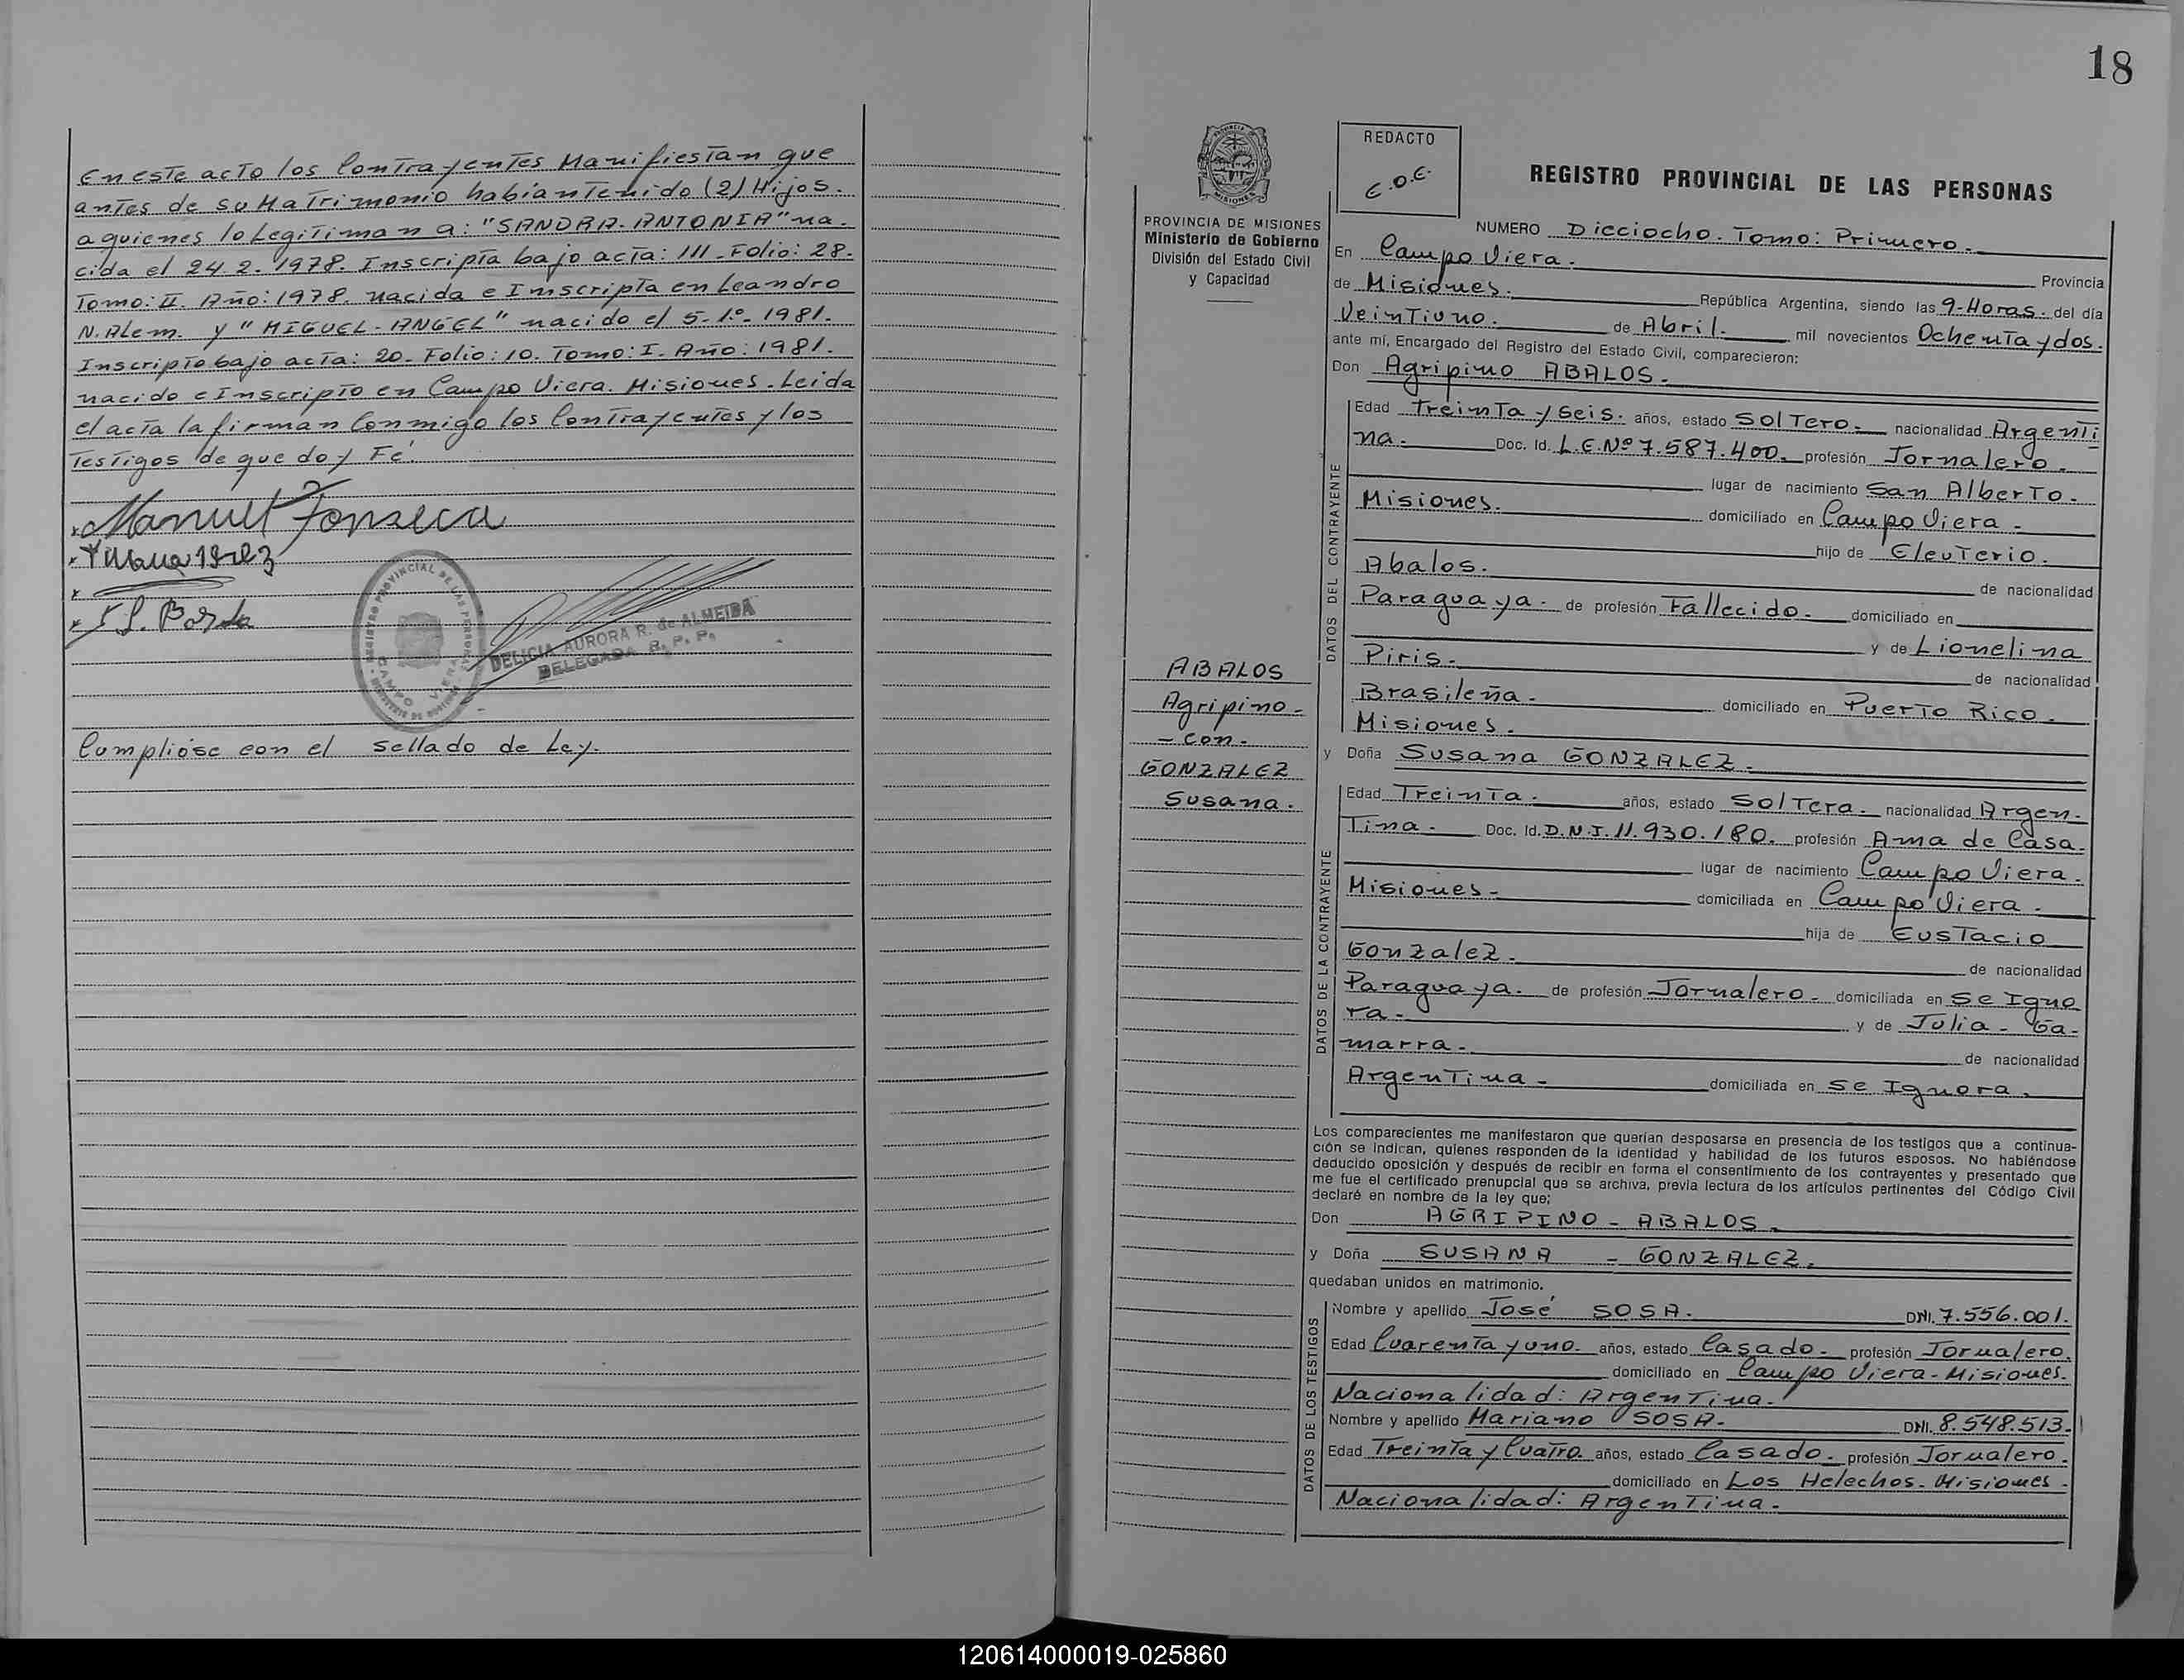 En este acto los Contrayentes Manifiestan que
antes de su Matrimonio habían tenido (2) Hijos.
a quienes lo Legitiman a: "SANDRA-ANTONIA" na-
cida el 24.2.1978. Inscripta bajo acta: 111. Folio: 28.
Tomo: II. Año: 1978. nacida e Inscripta en Leandro
N. Alem. y "MIGUEL-ANGEL" nacido el 5-1º-1981.
Inscripto bajo acta: 20. Folio: 10. Tomo: I. Año: 1981.
nacido e Inscripto en Campo Viera. Misiones. Leida
el acta la firman Conmigo los Contrayentes y los
Testigos de que doy Fé.
Manuel Fonseca
REGISTRO PROVINCIAL DE LAS PERSONAS
CAMPO VIERA
DELICIA AURORA R. de ALMEIDA
DELEGADA R. P. P.
Cumplióse con el sellado de Ley.
18
PROVINCIA DE MISIONES
Ministerio de Gobierno
División del Estado Civil
y Capacidad
ABALOS
Agripino-
- con -
GONZALEZ
Susana.
REDACTO
C.O.E.
REGISTRO PROVINCIAL DE LAS PERSONAS
NUMERO Dicciocho. Tomo: Primero.
En Campo Viera. Provincia
de Misiones. República Argentina, siendo las 9-Horas. del día
Veintiuno. de Abril. mil novecientos Ochenta y dos.
ante mí, Encargado del Registro del Estado Civil, comparecieron:
Don Agripino ABALOS.
DATOS DEL CONTRAYENTE
Edad Treinta y Seis. años, estado SOLTERO. nacionalidad Argenti
na. Doc. Id. L.E.Nº 7.587.400. profesión Jornalero.
lugar de nacimiento San Alberto.
Misiones. domiciliado en Campo Viera.
hijo de Eleuterio.
Abalos. de nacionalidad
Paraguaya. de profesión Fallecido. domiciliado en
y de Lionelina
Piris. de nacionalidad
Brasileña. domiciliado en Puerto Rico.
Misiones.
y Doña Susana GONZALEZ.
DATOS DE LA CONTRAYENTE
Edad Treinta. años, estado Soltera. nacionalidad Argen-
Tina. Doc. Id. D.N.I. 11.930.180. profesión Ama de Casa.
lugar de nacimiento Campo Viera.
Misiones. domiciliada en Campo Viera.
hija de Eustacio
Gonzalez. de nacionalidad
Paraguaya. de profesión Jornalero. domiciliada en Se Igno
ra. y de Julia - Ga-
marra. de nacionalidad
Argentina. domiciliada en Se Ignora.
Los comparecientes me manifestaron que querían desposarse en presencia de los testigos que a continua-
ción se indican, quienes responden de la identidad y habilidad de los futuros esposos. No habiéndose
deducido oposición y después de recibir en forma el consentimiento de los contrayentes y presentado que
me fue el certificado prenupcial que se archiva, previa lectura de los artículos pertinentes del Código Civil
declaré en nombre de la ley que;
Don AGRIPINO - ABALOS.
y Doña SUSANA - GONZALEZ.
quedaban unidos en matrimonio.
DATOS DE LOS TESTIGOS
Nombre y apellido José SOSA. DNI. 7.556.001.
Edad Cuarenta y uno. años, estado Casado. profesión Jornalero.
domiciliado en Campo Viera-Misiones.
Nacionalidad: Argentina.
Nombre y apellido Mariano SOSA. DNI. 8.548.513.
Edad Treinta y Cuatro. años, estado Casado. profesión Jornalero.
domiciliado en Los Helechos. Misiones.
Nacionalidad: Argentina.
120614000019-025860